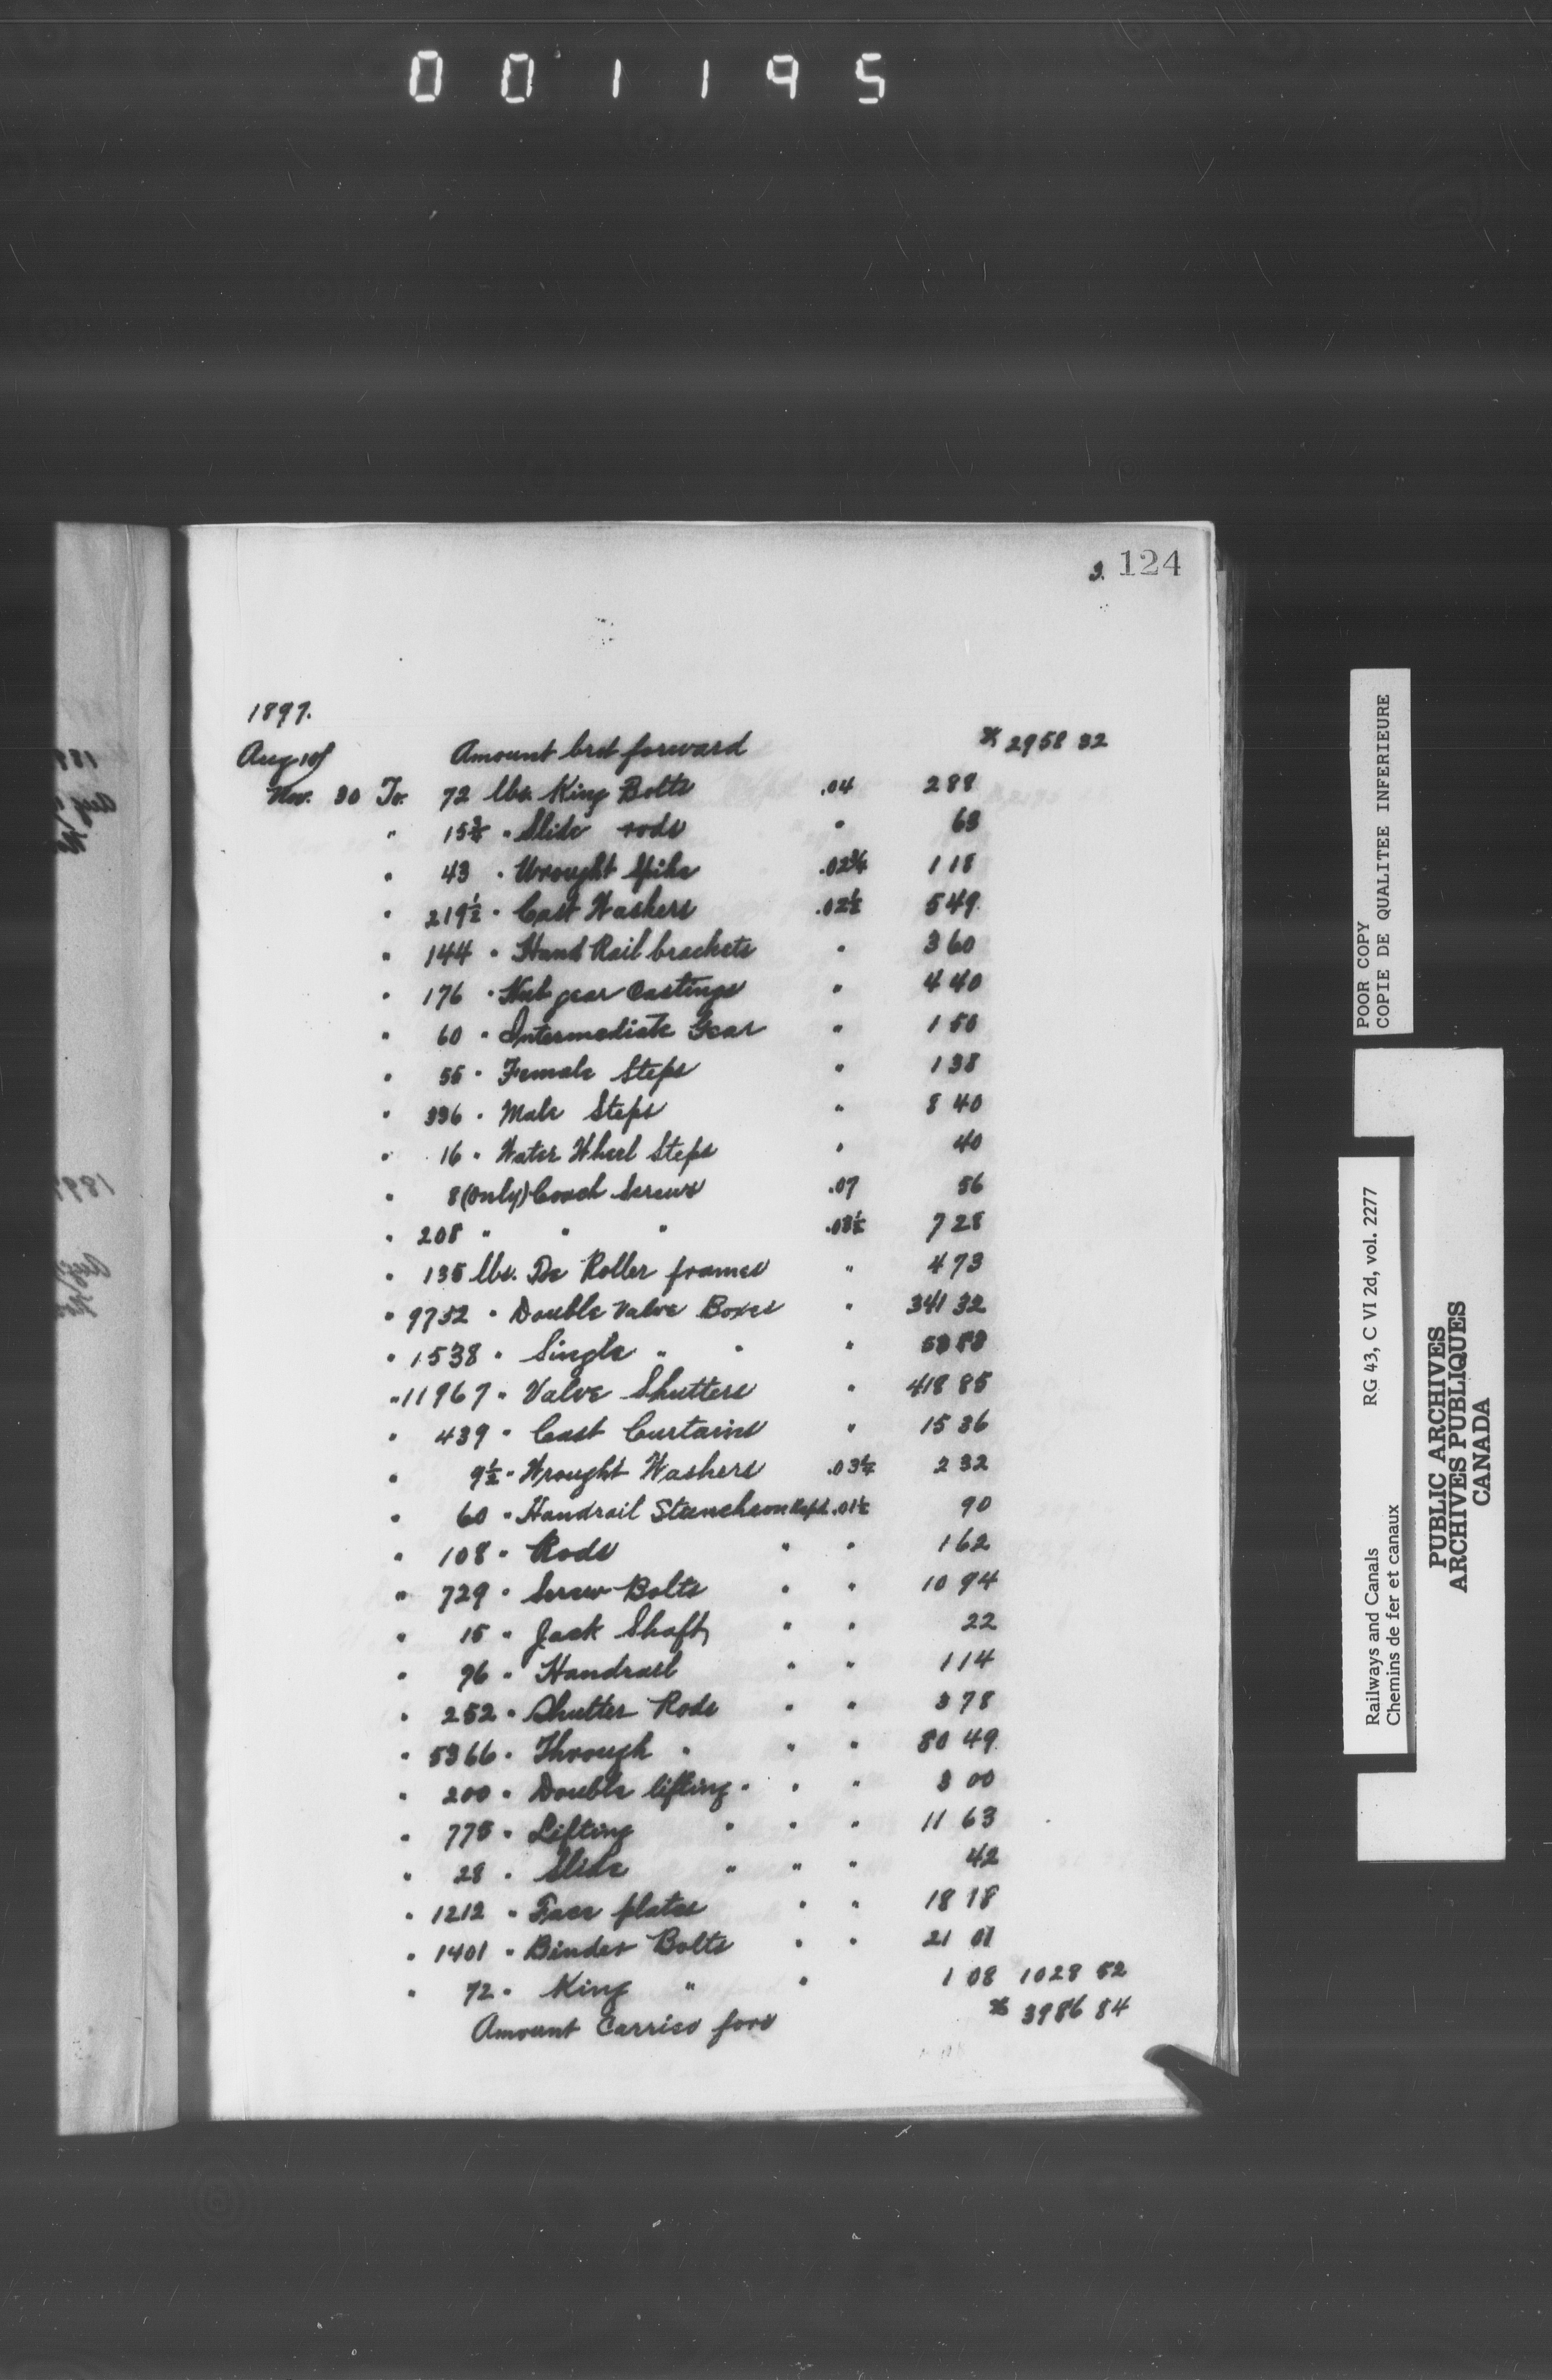 001195
3. 124
1897.
Aug 10/ Amount brot forward $ 2958 32
Nov. 30 To. 72 lbs. King Bolts .04 2 88
" 15¾ " Slide rods " 63
" 43 " Wrought Spike .02¾ 1 18
" 219½ " Cast Washers .02½ 5 49
" 144 " Hand Rail brackets " 3 60
" 176 " Hub gear Castings " 4 40
" 60 " Intermediate Gear " 1 50
" 55 " Female Steps " 1 38
" 336 " Male Steps " 8 40
" 16 " Water Wheel Steps " 40
" 8 (Only) Coach Screws .07 56
" 208 " " " .03½ 7 28
" 135 lbs. Roller frames " 4 73
" 9752 " Double Valve Boxes " 341 32
" 1538 " Single " " " 53 83
" 11967 " Valve Shutters " 418 85
" 439 " Cast Curtains " 15 36
" 9½ " Wrought Washers 2 32
" 60 " Handrail Stanchion .01½ 90
" 108 " Rods " " 1 62
" 729 " Screw Bolts " " 10 94
" 15 " Jack Shaft " " 22
" 96 " Handrail " " 1 14
" 252 " Shutter Rods " " 3 78
" 5366 " Through " " " 80 49
" 200 " Double lifting " " " 3 00
" 775 " Lifting " " " 11 63
" 28 " Slide " " " 42
" 1212 " Face plates " " 18 18
" 1401 " Binder Bolts " " 21 01
" 72 " King " " 1 08 1028 52
Amount Carried ford $ 3986 84
POOR COPY
COPIE DE QUALITEE INFERIEURE
Railways and Canals RG 43, C VI 2d, vol. 2277
Chemins de fer et canaux
PUBLIC ARCHIVES
ARCHIVES PUBLIQUES
CANADA